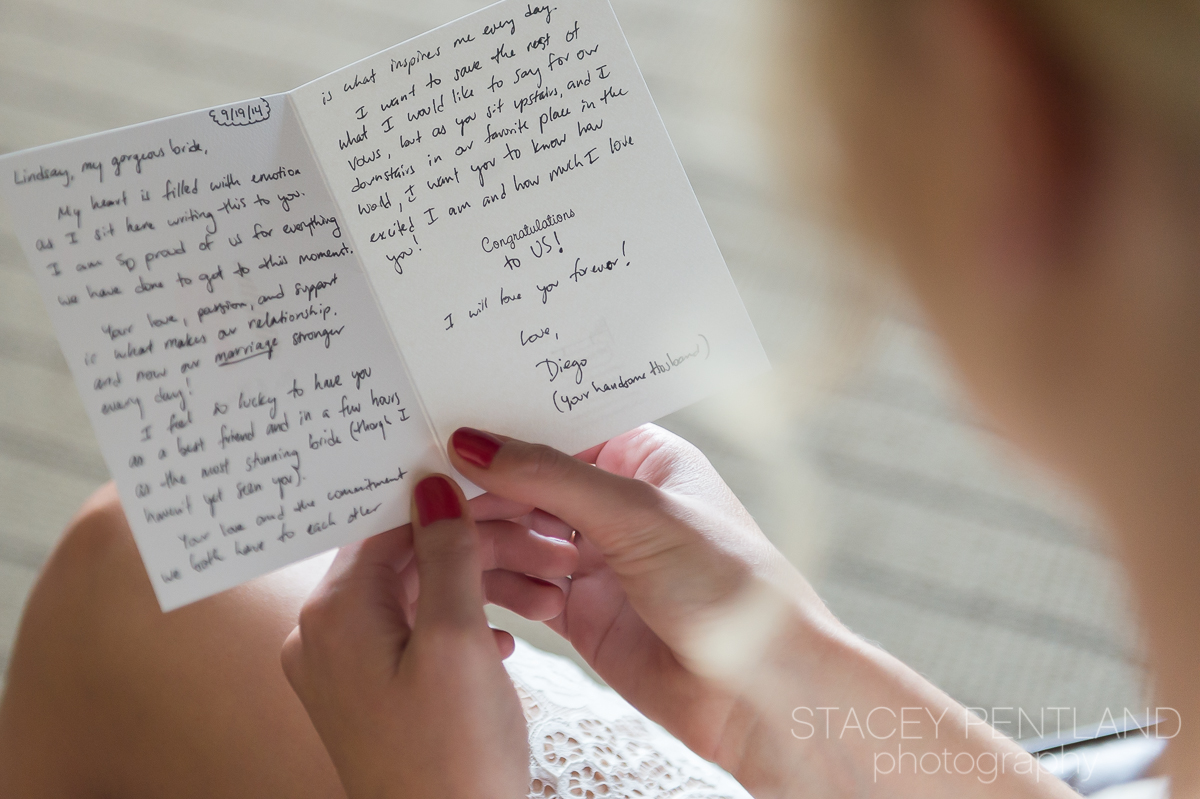 9/19/14
Lindsay, my gorgeous bride,
My heart is filled with emotion
as I sit here writing this to you.
I am so proud of us for everything
we have done to get to this moment.
Your love, passion, and support
is what makes our relationship,
and now our marriage stronger
every day!
I feel so lucky to have you
as a best friend and in a few hours
as the most stunning bride (though I
haven't yet seen you).
Your love and the commitment
we both have to each other
is what inspires me every day.
I want to save the rest of
what I would like to say for our
vows, but as you sit upstairs, and I
downstairs in our favorite place in the
world, I want you to know how
excited I am and how much I love
you!
Congratulations
to US!
I will love you forever!
Love,
Diego
(your handsome Husband)
STACEY PENTLAND
photography